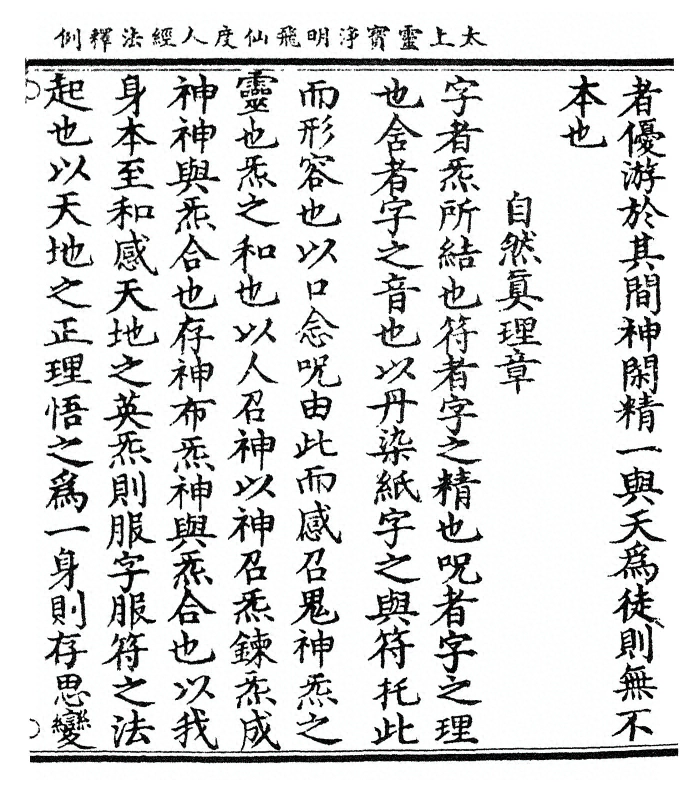 太上靈寶淨明飛仙度人經法釋例
者優游於其間神閑精一與天爲徒則無不
本也
自然眞理章
字者炁所結也符者字之精也呪者字之理
也含者字之音也以丹染紙字之與符托此
而形容也以口念呪由此而感召鬼神炁之
靈也炁之和也以人召神以神召炁鍊炁成
神神與炁合也存神布炁神與炁合也以我
身本至和感天地之英炁則服字服符之法
起也以天地之正理悟之爲一身則存思變